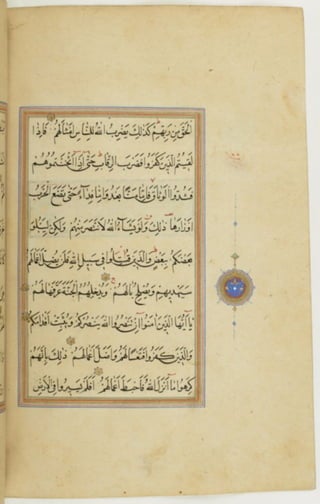 الحق من ربهم كذلك يضرب الله للناس امثالهم فاذا
لقيتم الذين كفروا فضرب الرقاب حتى اذا اثخنتموهم
فشدوا الوثاق فاما منا بعد واما فداء حتى تضع الحرب
اوزارها ذلك ولو يشاء الله لانتصر منهم ولكن ليبلو
بعضكم ببعض والذين قتلوا في سبيل الله فلن يضل اعمالهم
سيهديهم ويصلح بالهم ويدخلهم الجنة عرفها لهم
يا ايها الذين امنوا ان تنصروا الله ينصركم ويثبت اقدامكم
والذين كفروا فتعسا لهم واضل اعمالهم ذلك بانهم
كرهوا ما انزل الله فاحبط اعمالهم افلم يسيروا في الارض